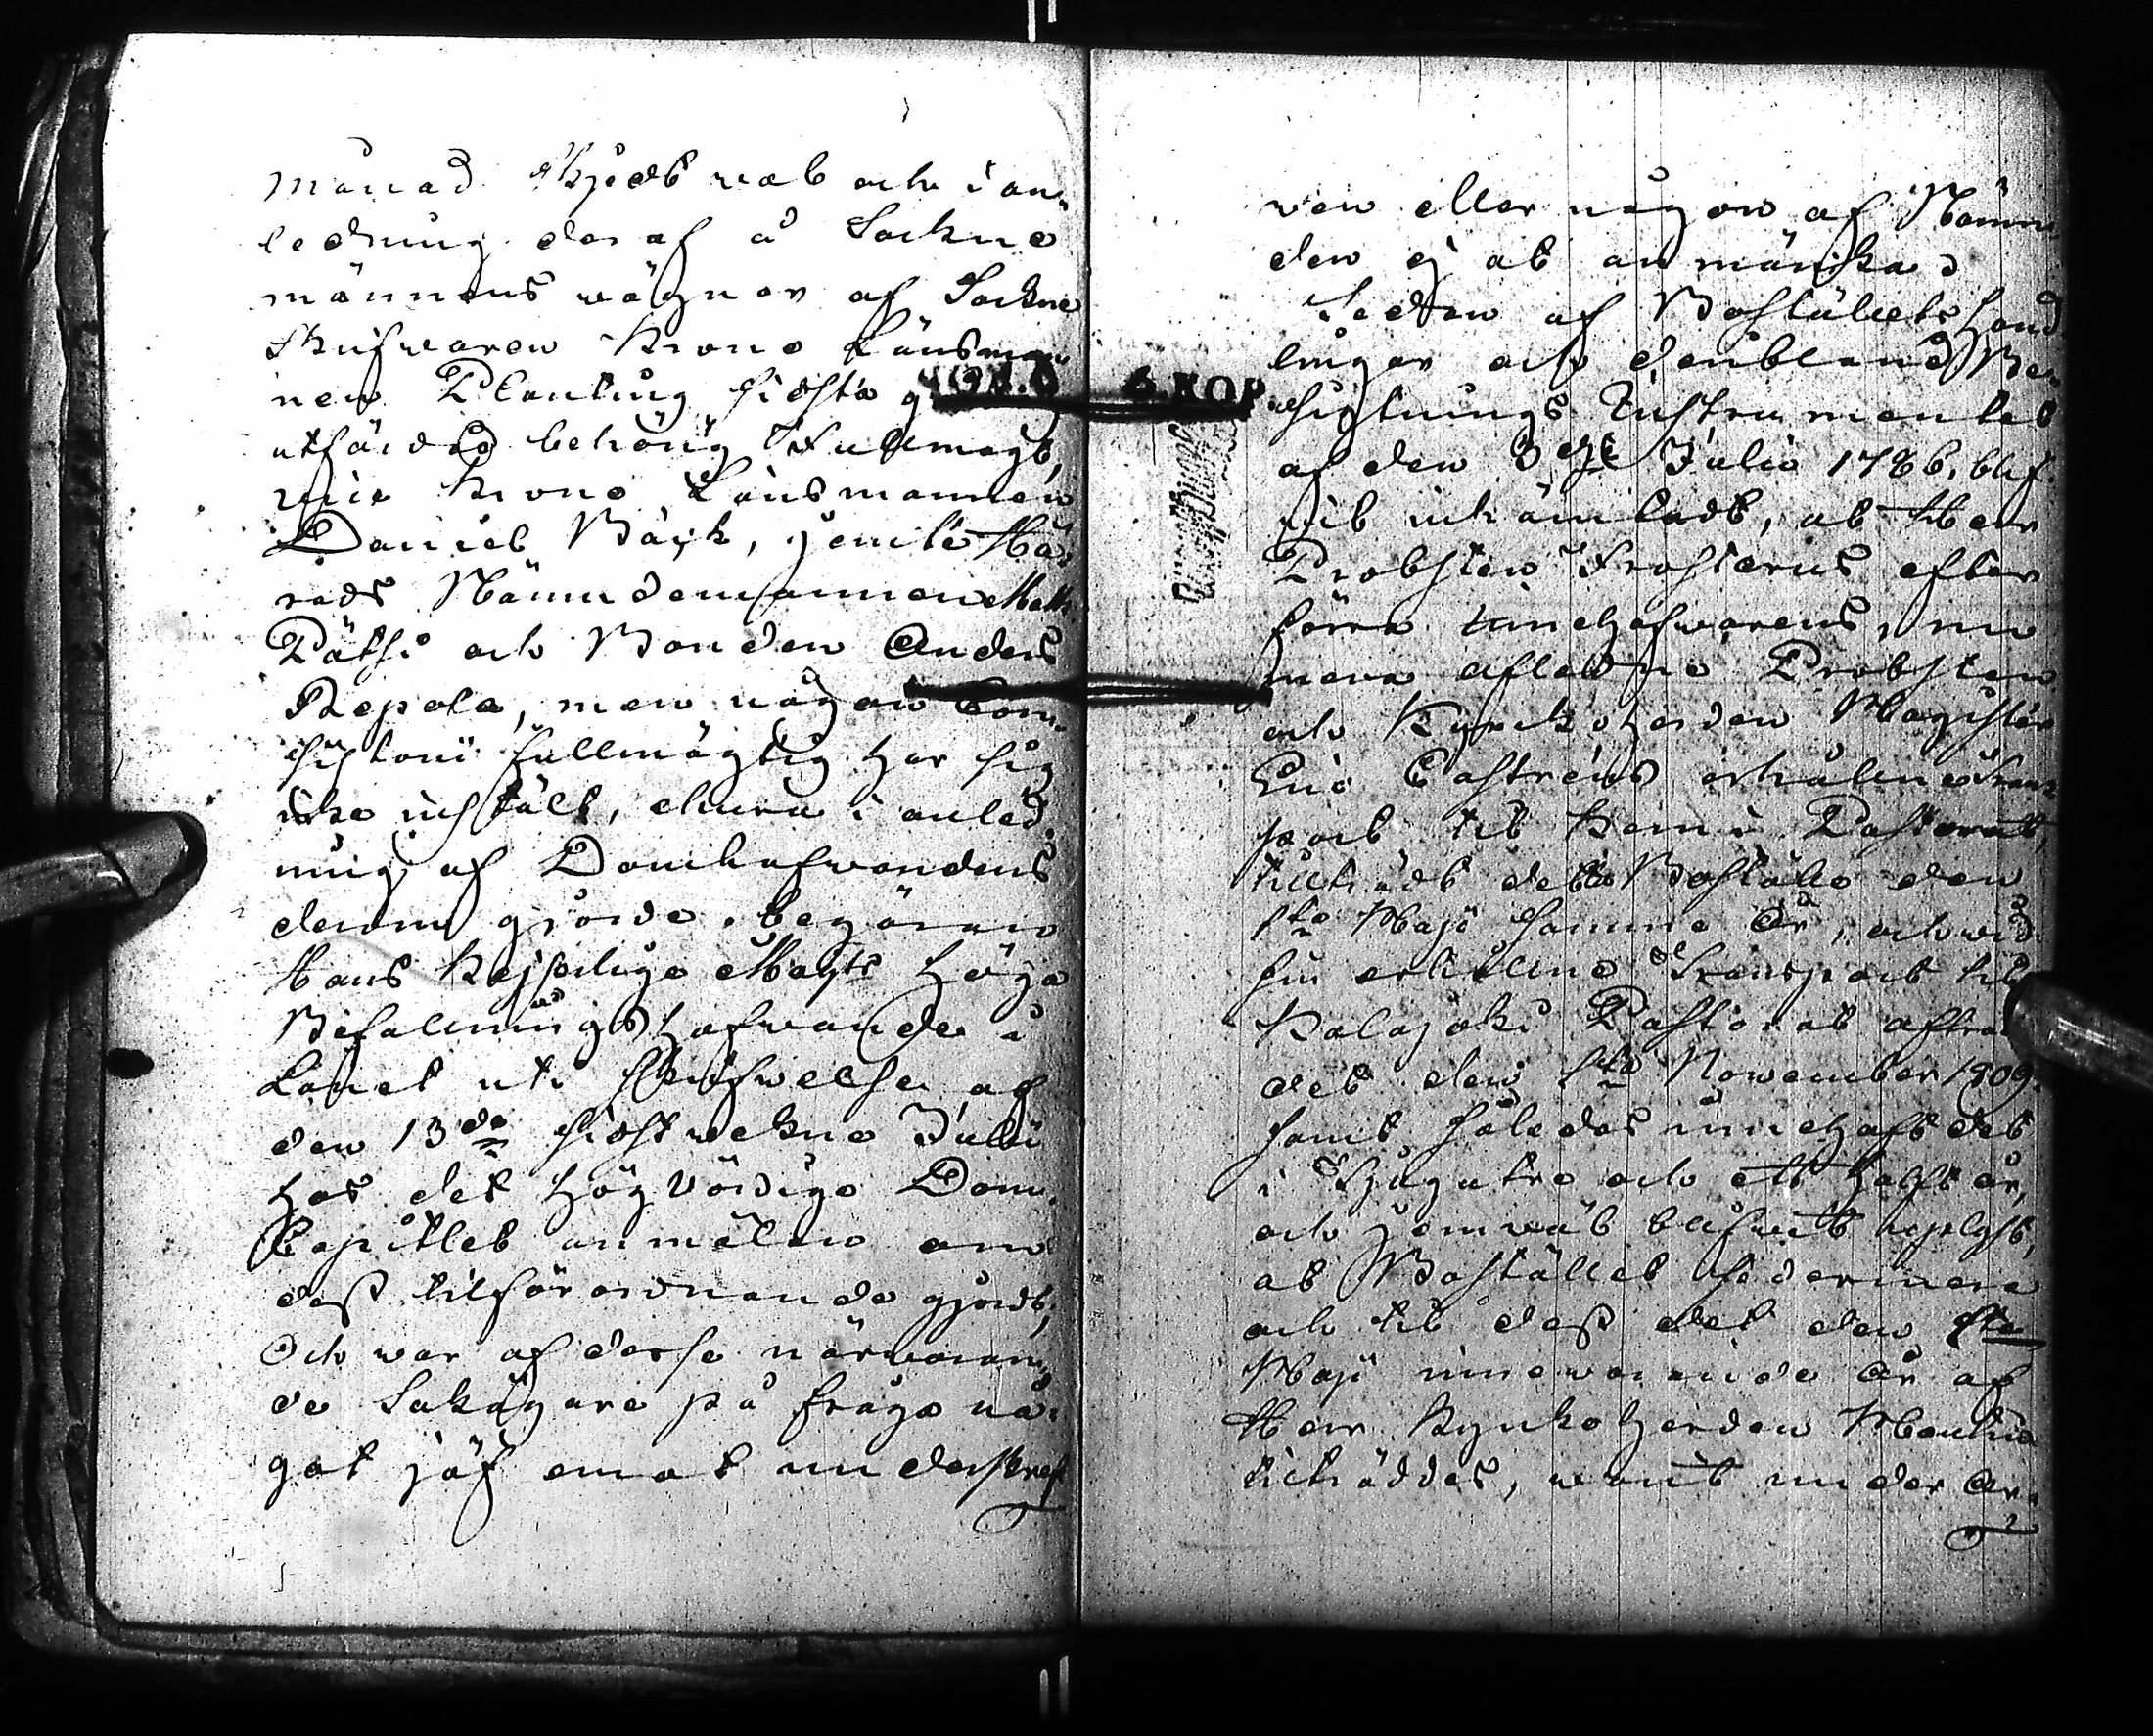 månad skjedt wat och i an¬
ledning deraf å Sockne
männens wägnar af Sockne
Skrifwaren Krono Länsman
nen Planting sidsta
utfärdad behörig Fullmagt,
Krono Länsmannen
Daniel Bäck, jemte Hä¬
rads Nämndemannen Matts
Pätsi och Bonden Anders
Repola, men någon Con¬
sistorii fullmägtig har sig
icke instält, ehuru i anled¬
ning af Domhafwandens
derom gjorde begäran
Hans Kejserlige Majts Höga
Befallningshafwande i
Länet uti skrifwelse af
den 13de sidstwekne Julii
hos det Högvördige Dom
Capitlet anmälan om
dess tilförordnande gjordt;
Och war af desse närwaran¬
de Sakägare på fråga nå¬
got jäf emot underskref
wen eller någon af Nämn
den ej at anmärka;
Sedan af Boställets hand
lingar och deribland Be¬
sigtnings Instrumentet
af den 3dje Julii 1786, blif
wit inhämtadt, at Herr
Probsten Frosterus efter
förra innehafwarens, nu
mera aflednе Probsten
och Kyrckoherden Magister
Eric Castréns erhålne Trans
port till Kemi Pastorat,
tilträdt detta Boställe den
1sta Maji samma År, och wid
sin erhållne Transport til
Kalajoki Pastorat afträ
det den 1sta November 1809.
samt således innehaft det
i tjugutre och ett halft år,
och jemwäl blifwit uplyst,
at Bostället sedermera
och til dess det den 1sta
Maji innewarande År af
Herr Kyrkoherden
tilträddes, warit under Ar¬